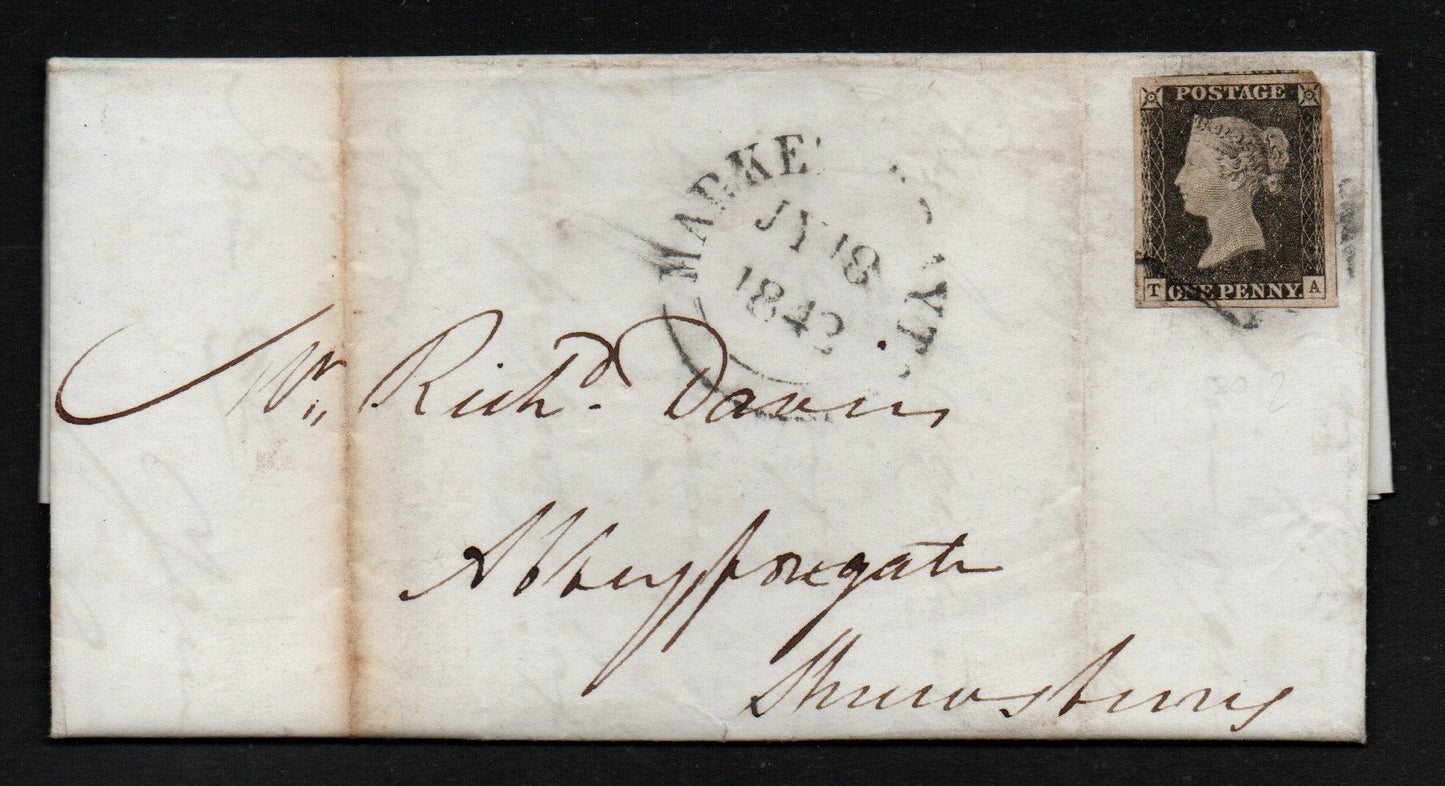 POSTAGE
T ONE PENNY. A
MARKE
JY 18
1842
Mr. Richd. Davies
Abbeyforegate
Shrewsbury